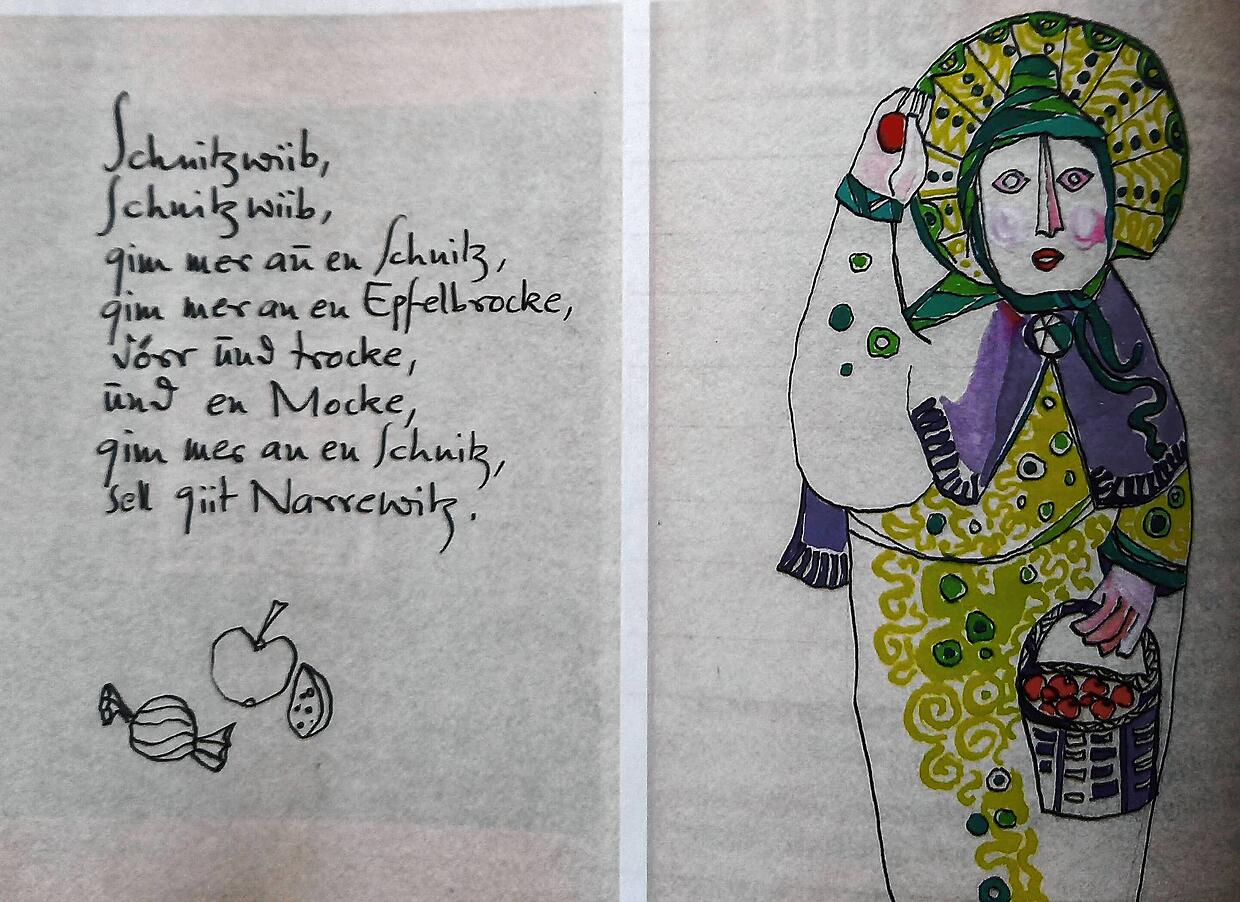 Schnitzwiib,
Schnitzwiib,
gim mer aū en Schnitz,
gim mer au en Epfelbrocke,
dörr ūnd trocke,
ūnd en Mocke,
gim mer au en Schnitz,
sell giit Narrewitz.